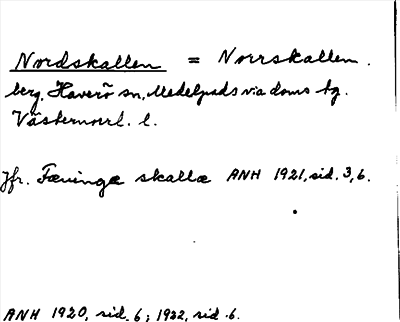 Nordskallen = Norrskallen.
berg, Haverö sn, Medelpads v:a doms. tg.
Västernorrl. l.
Jfr. Fæningæ skallæ ANH 1921, sid. 3, 6.
ANH 1920, sid. 6; 1922, sid. 6.